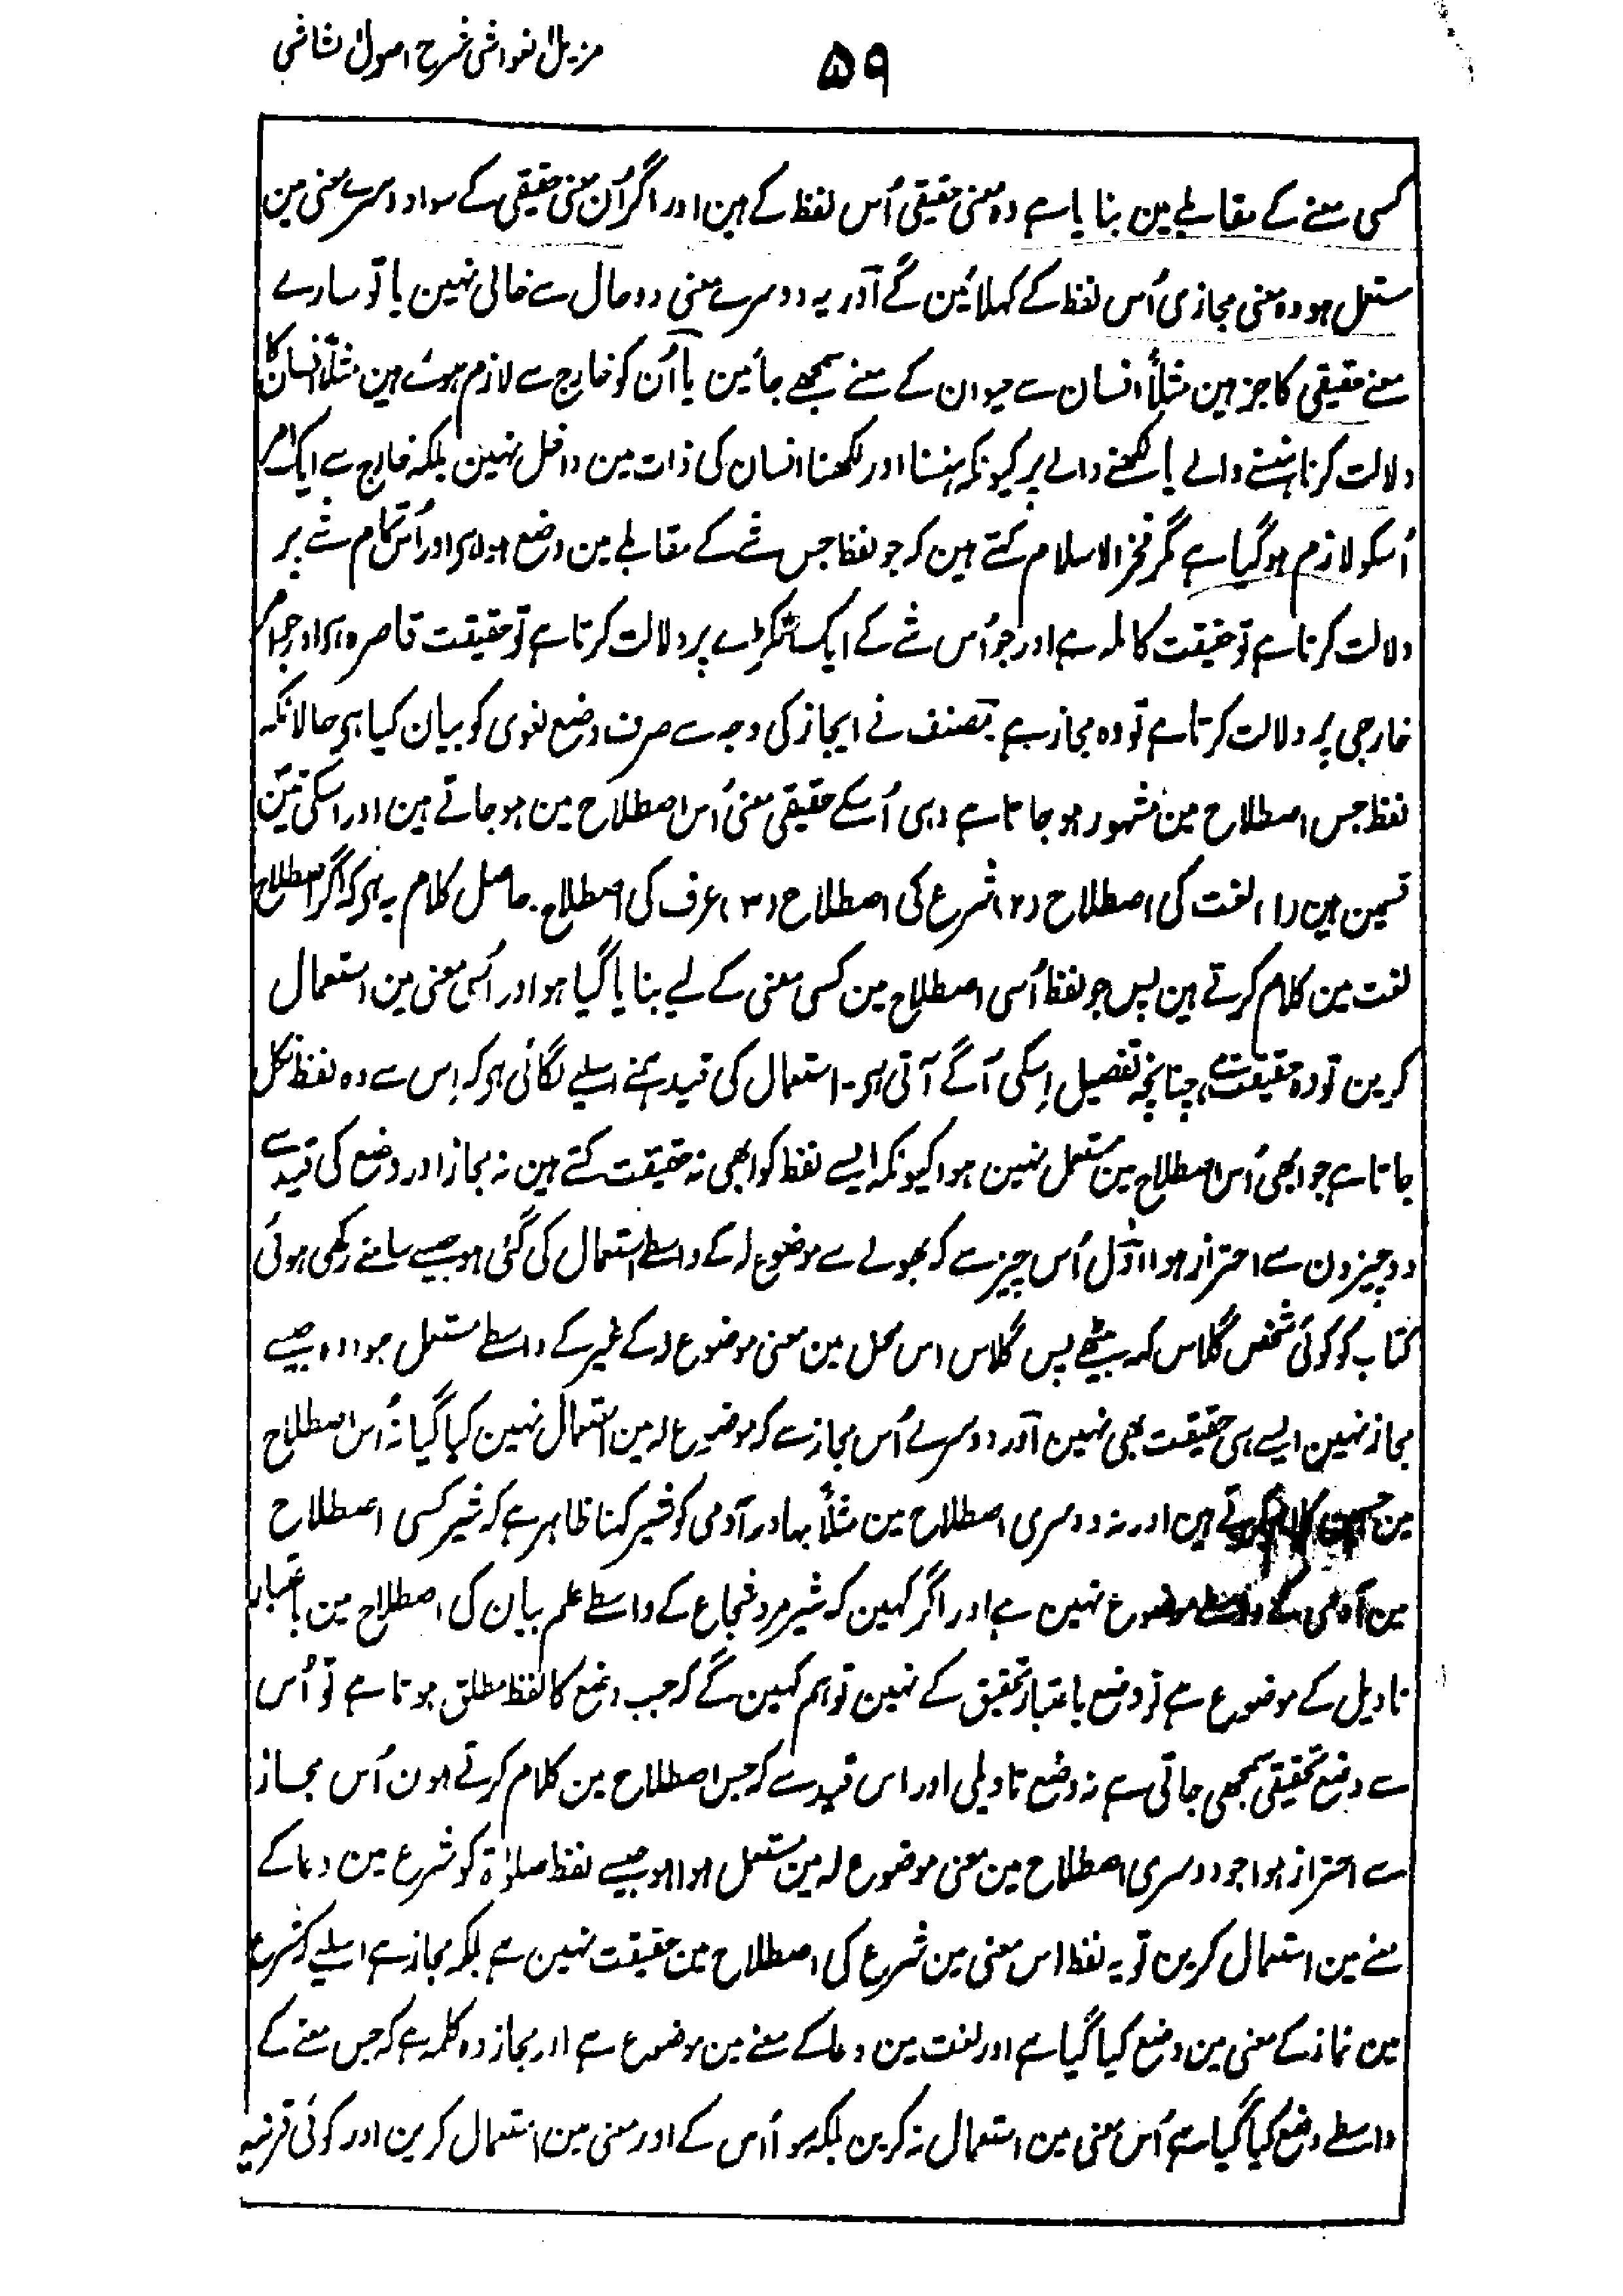 ۵۹
مزیل الغواشی شرح اصول الشاشی
کسی معنے کے مقابلے مین بنایا ہے وہ معنی حقیقی اُس لفظ کے ہین اور اگر اُن معنی حقیقی کے سوا دوسرے معنی مین
مستعمل ہو وہ معنی مجازی اُس لفظ کے کہلائین گے آور یہ دوسرے معنی دو حال سے خالی نہین یا تو سارے
معنے حقیقی کا جز ہین مثلاً انسان سے حیوان کے معنے سمجھے جائین یا اُن کو خارج سے لازم ہوے ہین مثلاً انسان کا
دلالت کرنا ہنسنے والے یا لکھنے والے پر کیونکہ ہنسنا اور لکھنا انسان کی ذات مین داخل نہین بلکہ خارج سے ایک امر
اُسکو لازم ہوگیا ہے مگر فخر الاسلام کہتے ہین کہ جو لفظ جس شے کے مقابلے مین وضع ہوا ہی اور اُس تمام شے پر
دلالت کرتا ہے تو حقیقت کاملہ ہے اور جو اُس شے کے ایک ٹکڑے پر دلالت کرتا ہے تو حقیقت قاصرہ ہی اور جو امر
خارجی پر دلالت کرتا ہے تو وہ مجاز ہے مصنف نے ایجاز کی وجہ سے صرف وضع لغوی کو بیان کیا ہی حالانکہ
لفظ جس اصطلاح مین مشہور ہو جاتا ہے وہی اُسکے حقیقی معنی اُس اصطلاح مین ہو جاتے ہین اور اسکی تین
قسمین ہین (۱) لغت کی اصطلاح (۲) شرع کی اصطلاح (۳) عرف کی اصطلاح۔ حاصل کلام یہ ہی کہ اگر اصطلاح
لغت مین کلام کرتے ہین پس جو لفظ اُسی اصطلاح مین کسی معنی کے لیے بنایا گیا ہو اور اُسی معنی مین استعمال
کرین تو وہ حقیقت ہے چنانچہ تفصیل اِسکی آگے آتی ہی۔ استعمال کی قید ہمنے اسلیے لگائی ہی کہ اِس سے وہ لفظ نکل
جاتا ہے جو ابھی اُس اصطلاح مین مستعمل نہین ہوا کیونکہ ایسے لفظ کو ابھی نہ حقیقت کہتے ہین نہ مجاز اور وضع کی قید سے
دو چیزون سے احتراز ہوا اوّل اُس چیز سے کہ بھولے سے موضوع لہ کے واسطے استعمال کی گئی ہو جیسے سامنے رکھی ہوئی
کتاب کو کوئی شخص گلاس کہہ بیٹھے پس گلاس اس محل مین معنی موضوع لہ کے غیر کے واسطے مستعمل ہوا وہ جیسے
مجاز نہین ایسے ہی حقیقت بھی نہین آور دوسرے اُس مجاز سے کہ موضوع لہ مین استعمال نہین کیا گیا نہ اُس اصطلاح
مین جسمین کلام کرتے ہین اور نہ دوسری اصطلاح مین مثلاً بہادر آدمی کو شیر کہنا ظاہر ہے کہ شیر کسی اصطلاح
مین آدمی کے واسطے موضوع نہین ہے اور اگر کہین کہ شیر مرد شجاع کے واسطے علم بیان کی اصطلاح مین باعتبار
تاویل کے موضوع ہے تو وضع باعتبار تحقیق کے نہین تو ہم کہین گے کہ جب وضع کا لفظ مطلق ہوتا ہے تو اُس
سے وضع تحقیقی سمجھی جاتی ہے نہ وضع تاویلی اور اس قید سے کہ جس اصطلاح مین کلام کرتے ہون اُس مجاز
سے احتراز ہوا جو دوسری اصطلاح مین معنی موضوع لہ مین مستعمل ہوا ہو جیسے لفظ صلوٰۃ کو شرع مین دعا کے
معنے مین استعمال کرین تو یہ لفظ اس معنی مین شرع کی اصطلاح مین حقیقت نہین ہے بلکہ مجاز ہے اسلیے کہ شرع
مین نماز کے معنی مین وضع کیا گیا ہے اور لغت مین دعا کے معنے مین موضوع ہے اور مجاز وہ کلمہ ہے کہ جس معنے کے
واسطے وضع کیا گیا ہے اُس معنی مین استعمال نہ کرین بلکہ سوا اُس کے اور معنی مین استعمال کرین اور کوئی قرینہ